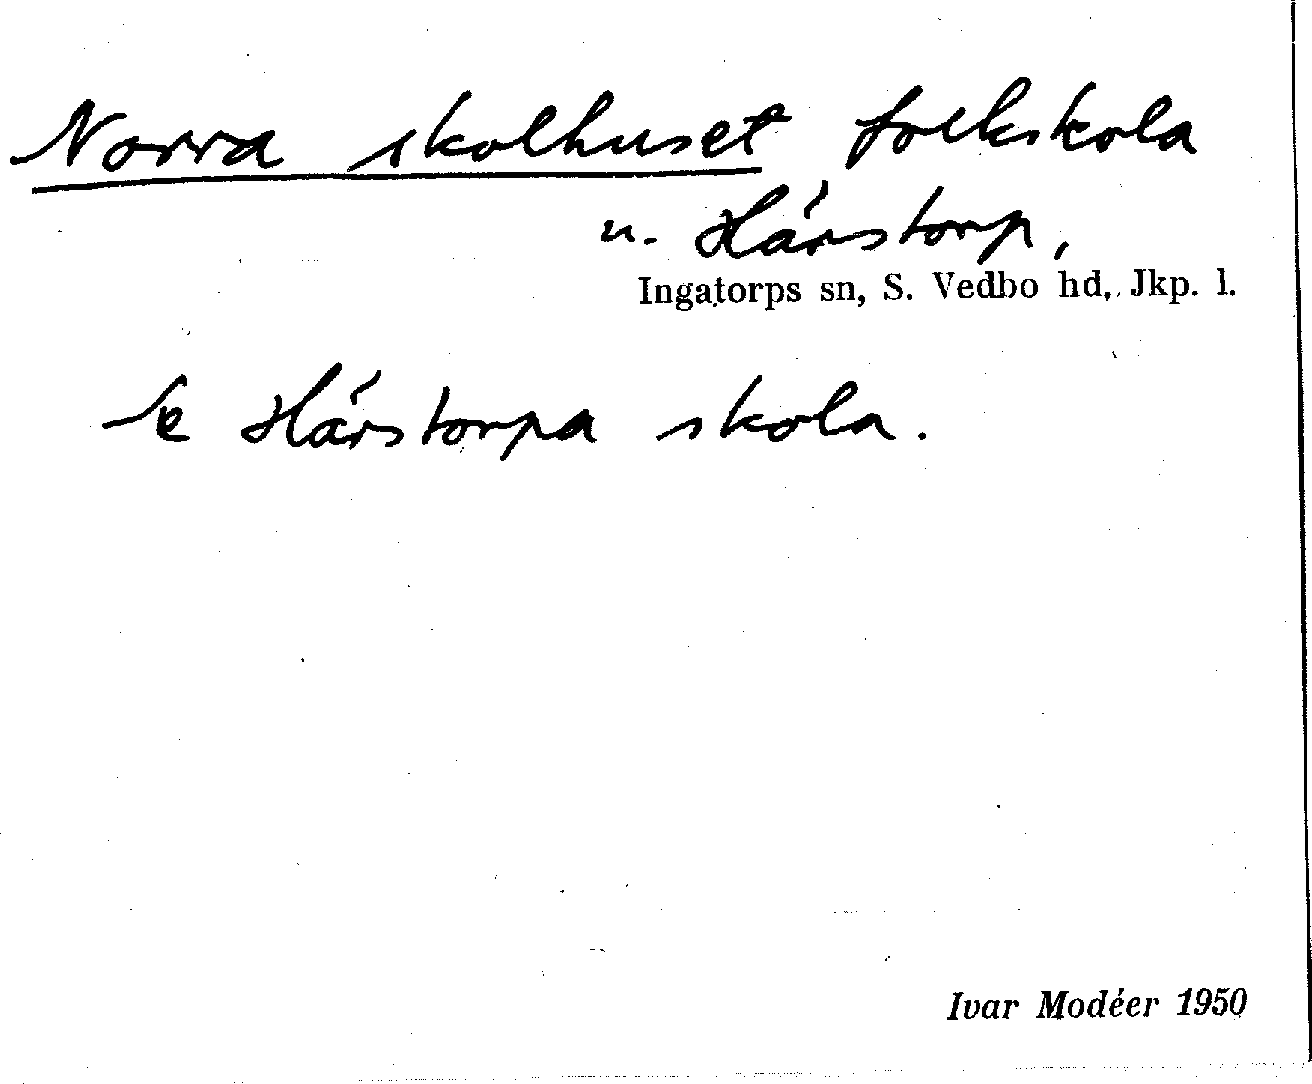 Norra skolhuset folkskola
u. Hårstorp,
Ingatorps sn, S. Vedbo hd, Jkp. l.
Se Hårstorpa skola.
Ivar Modéer 1950